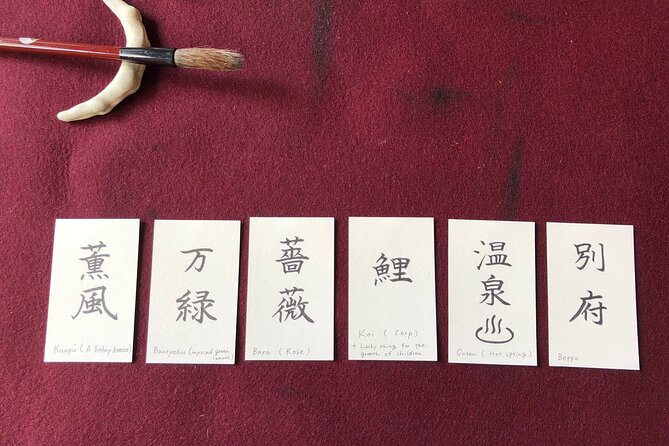 薫
風
Kunpū ( A balmy breeze)
万
緑
Banryoku (myriad green
leaves)
薔
薇
Bara ( Rose )
鯉
Koi ( Carp )
* Lucky thing for the
growth of children.
温
泉
♨
Onsen ( Hot spring )
別
府
Beppu